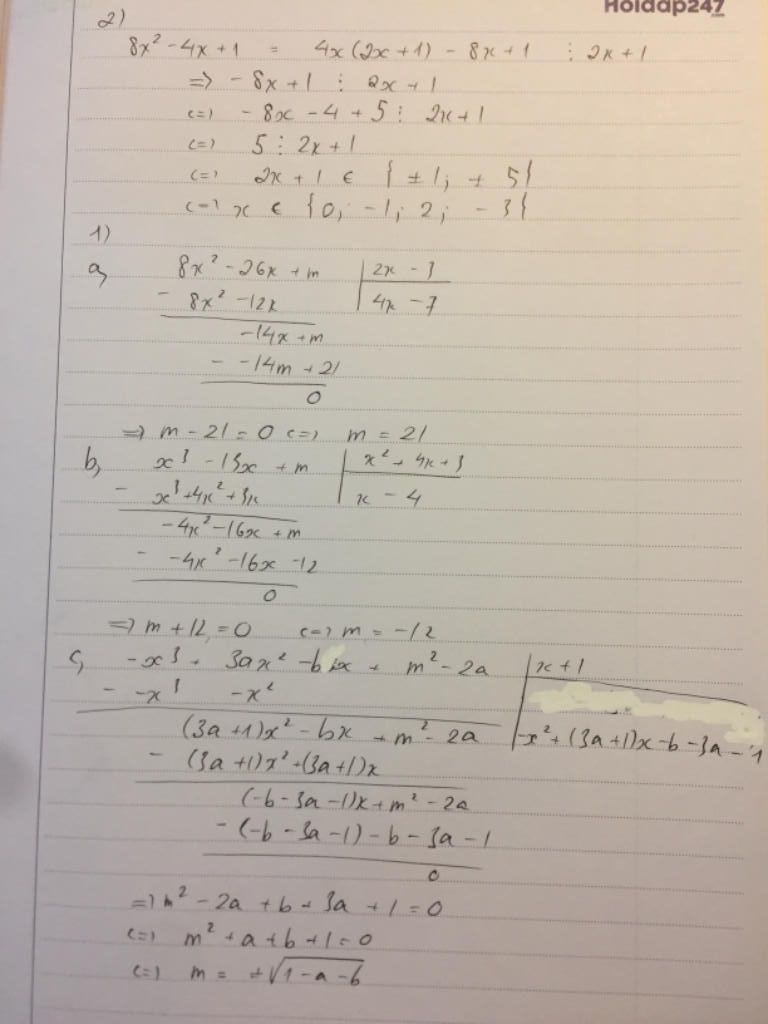 Hoidap247
2)
8x² - 4x + 1 = 4x(2x + 1) - 8x + 1 ⋮ 2x + 1
=> - 8x + 1 ⋮ 2x + 1
<=> - 8x - 4 + 5 ⋮ 2x + 1
<=> 5 ⋮ 2x + 1
<=> 2x + 1 ∈ { ± 1; ± 5}
<=> x ∈ {0; -1; 2; - 3}
1)
a, 8x² - 26x + m | 2x - 3
- 8x² - 12x | 4x - 7
-14x + m
- -14m + 21
0
=> m - 21 = 0 <=> m = 21
b, x³ - 13x + m | x² + 4x + 3
- x³ + 4x² + 3x | x - 4
-4x² - 16x + m
- -4x² - 16x - 12
0
=> m + 12 = 0 <=> m = -12
c, -x³ + 3ax² - bx + m² - 2a | x + 1
- -x³ - x²
(3a + 1)x² - bx + m² - 2a | -x² + (3a + 1)x - b - 3a - 1
- (3a + 1)x² + (3a + 1)x
(-b - 3a - 1)x + m² - 2a
- (-b - 3a - 1) - b - 3a - 1
0
=> m² - 2a + b + 3a + 1 = 0
<=> m² + a + b + 1 = 0
<=> m = ±√1 - a - b